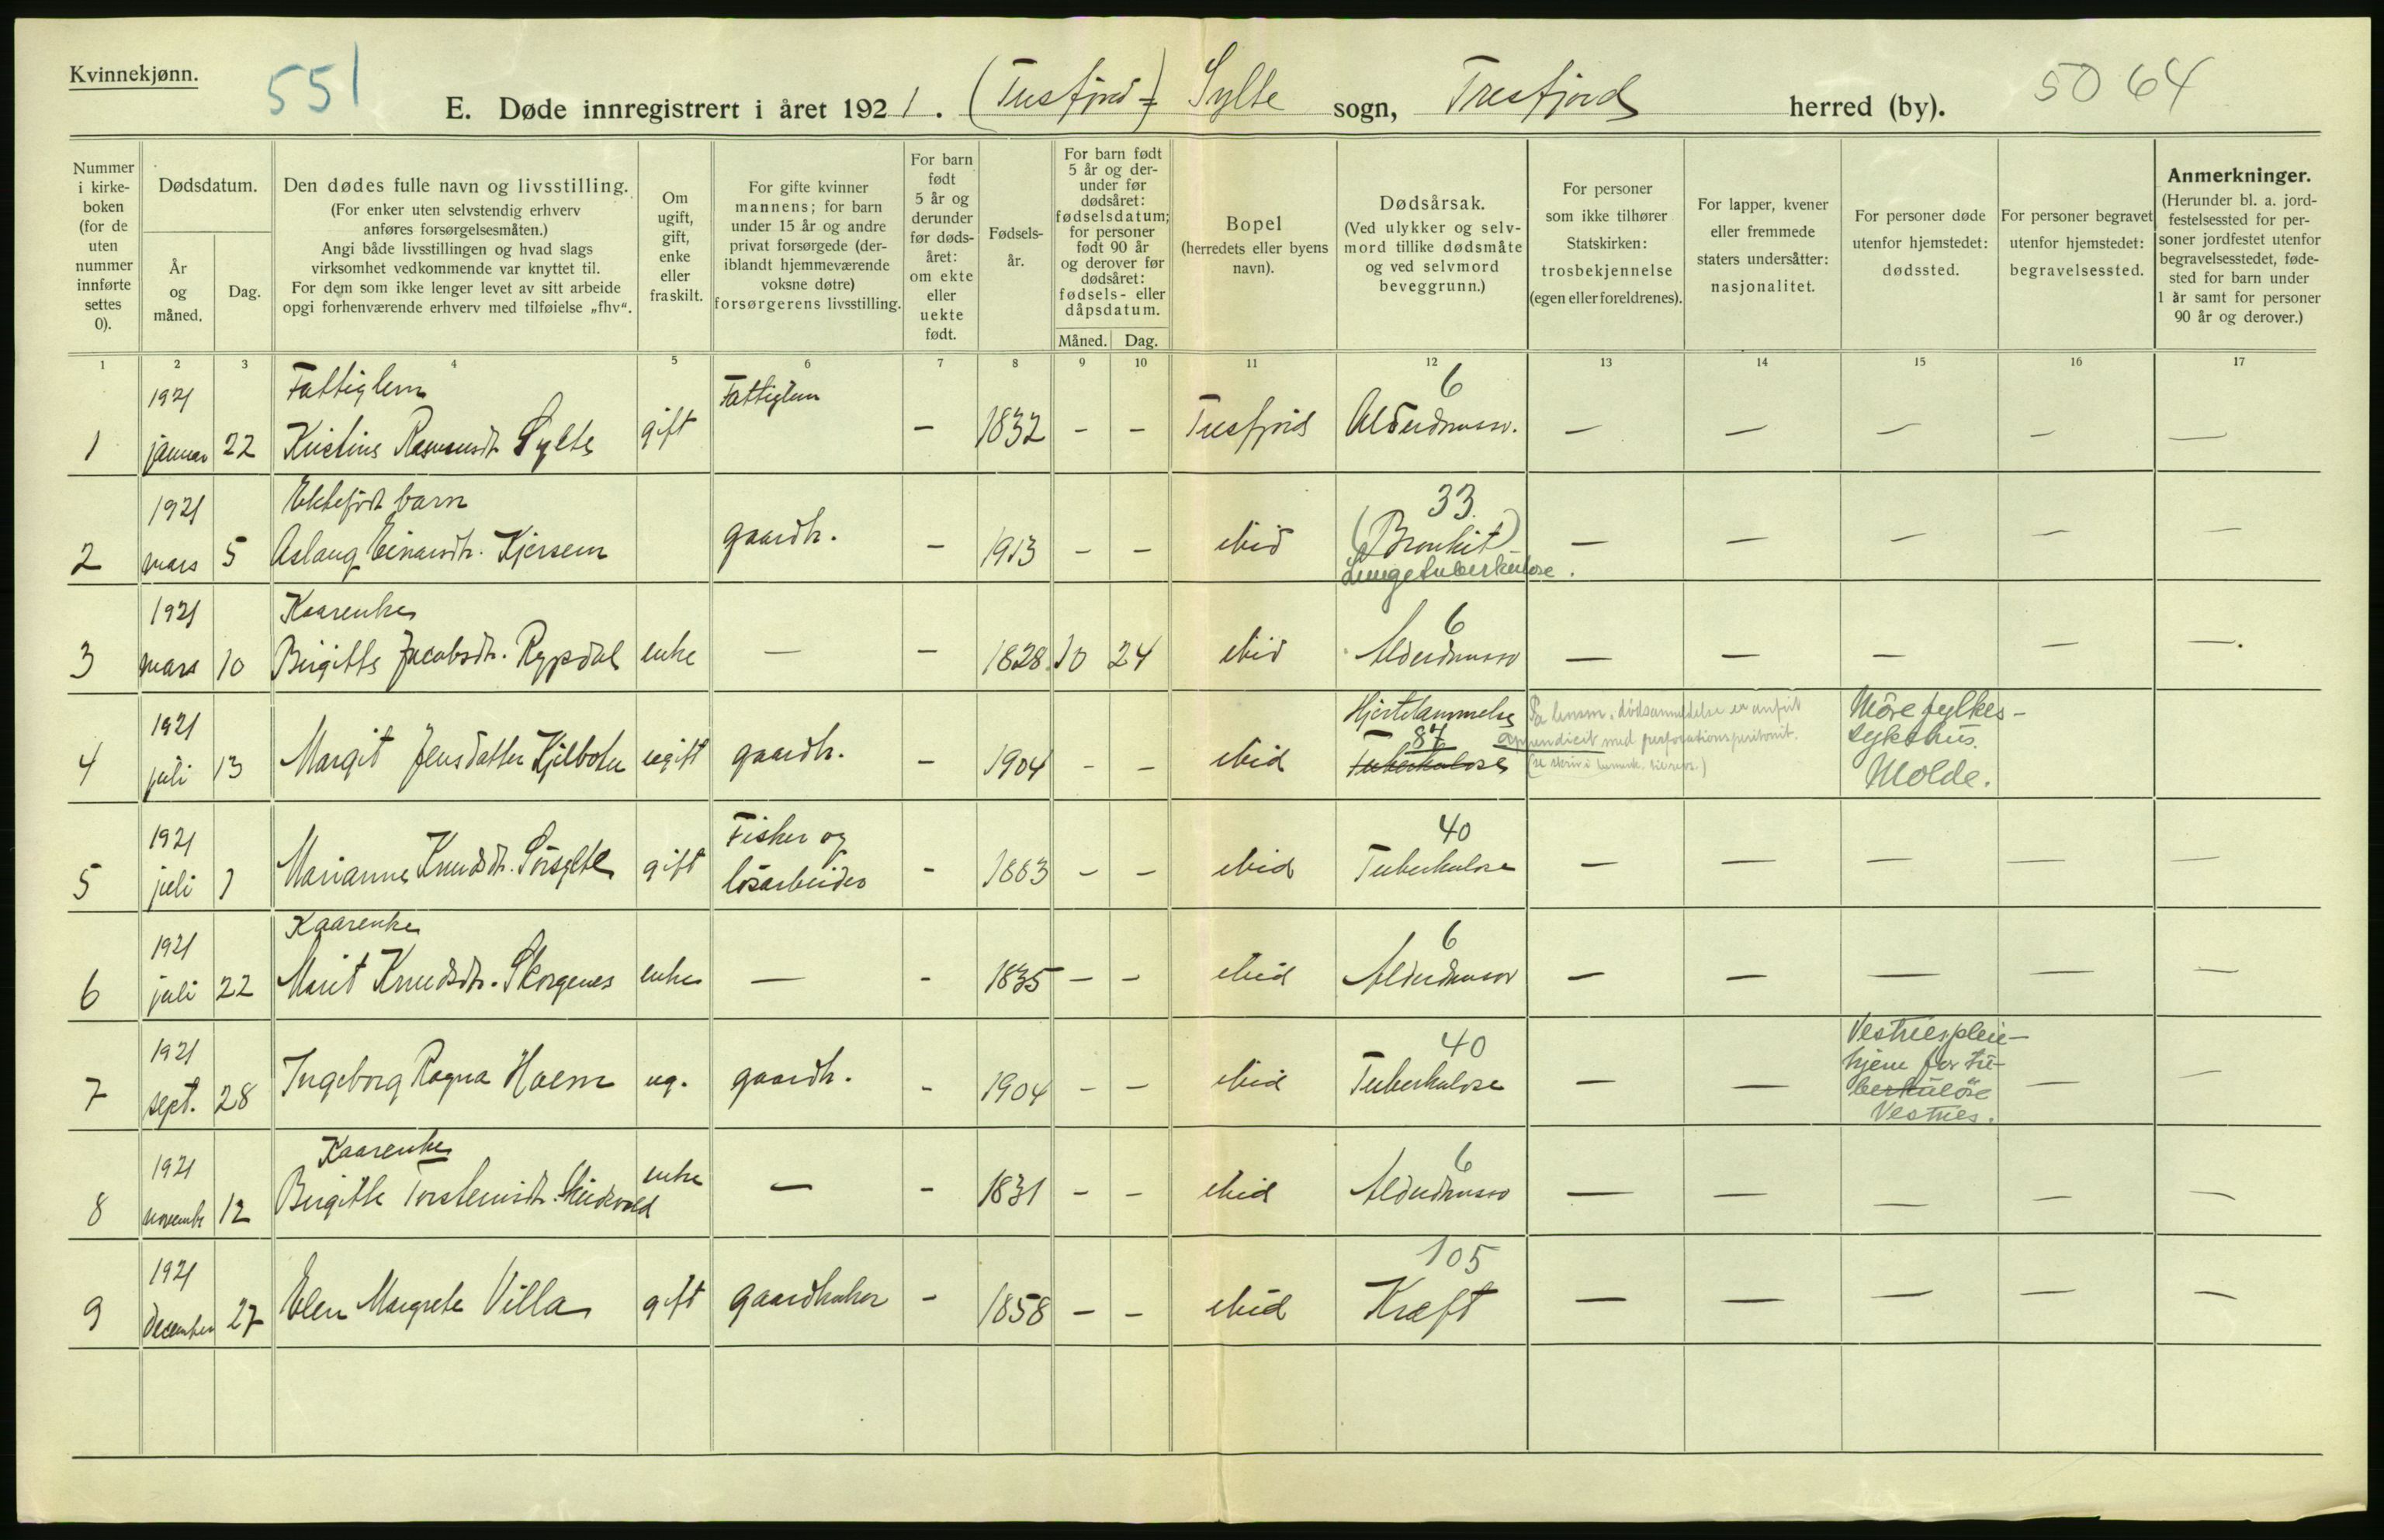 Kvinnekjønn.
551
E. Døde innregistrert i året 1921. (Tresfjord=) Sylte sogn, Tresfjord herred (by).
5064
Nummer i kirke- boken (for de uten nummer innførte settes 0).
Dødsdatum.
År og måned.
Dag.
Den dødes fulle navn og livsstilling.
(For enker uten selvstendig erhverv anføres forsørgelsesmåten.)
Angi både livsstillingen og hvad slags virksomhet vedkommende var knyttet til.
For dem som ikke lenger levet av sitt arbeide opgi forhenværende erhverv med tilføielse „fhv“.
Om ugift, gift, enke eller fraskilt.
For gifte kvinner mannens; for barn under 15 år og andre privat forsørgede (der- iblandt hjemmeværende voksne døtre) forsørgerens livsstilling.
For barn født 5 år og derunder før døds- året: om ekte eller uekte født.
Fødsels- år.
For barn født 5 år og der- under før dødsåret: fødselsdatum; for personer født 90 år og derover før dødsåret: fødsels- eller dåpsdatum.
Måned.
Dag.
Bopel (herredets eller byens navn).
Dødsårsak. (Ved ulykker og selv- mord tillike dødsmåte og ved selvmord beveggrunn.)
For personer som ikke tilhører Statskirken: trosbekjennelse (egen eller foreldrenes).
For lapper, kvener eller fremmede staters undersåtter: nasjonalitet.
For personer døde utenfor hjemstedet: dødssted.
For personer begravet utenfor hjemstedet: begravelsessted.
Anmerkninger. (Herunder bl. a. jord- festelsessted for per- soner jordfestet utenfor begravelsesstedet, føde- sted for barn under 1 år samt for personer 90 år og derover.)
1 2 3 4 5 6 7 8 9 10 11 12 13 14 15 16 17
1921 Fattiglem Fattiglem 6
1 januar 22 Kristine Rasmusdt. Sylte gift — 1832 — — Tresfjord Alderdomssv. — — — — —
1921 Ektefødt barn 33
2 mars 5 Aslaug Einarsdtr. Kjersem gaardbr. — 1913 — — ibid (Bronkit) — — — — —
Lungetuberkulose.
1921 Kaarenke 6
3 mars 10 Birgitte Jacobsdtr. Rypdal enke — — 1828 10 24 ibid Alderdomssv — — — — —
1921 Hjertelammelse På lensm. dødsanmeldelse er anført Møre fylkes-
87 appendicit med perforationsperitonit. sykehus.
4 juli 13 Margit Jensdatter Kjelbotn ugift gaardbr. — 1904 — — ibid Tuberkulose Molde.
1921 Fisker og 40
5 juli 1 Marianne Knudsdt. Sørsylte gift løsarbeider — 1863 — — ibid Tuberkulose — — — — —
1921 Kaarenke 6
6 juli 22 Marit Knudsdtr. Skorgenes enke — — 1835 — — ibid Alderdomssv — — — — —
1921 40 Vestnes pleie-
hjem for tu-
7 sept. 28 Ingeborg Ragna Haem ug. gaardbr. — 1904 — — ibid Tuberkulose — — berkuløse — —
Vestnes.
1921 Kaarenke 6
8 novembr 12 Birgitte Torsteinsdt. enke — — 1831 — — ibid Alderdomssv — — — — —
1921 105
9 december 27 Elen Margrete Villa gift gaardbruker — 1858 — — ibid Kræft — — — — —